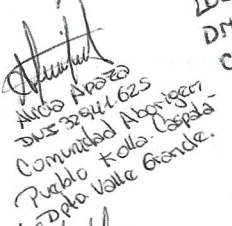 Alicia Apaza
DNI 32941.625
Comunidad Aborigen
Pueblo Kolla. Caspala-
Dpto Valle Grande.
LO
DN
C